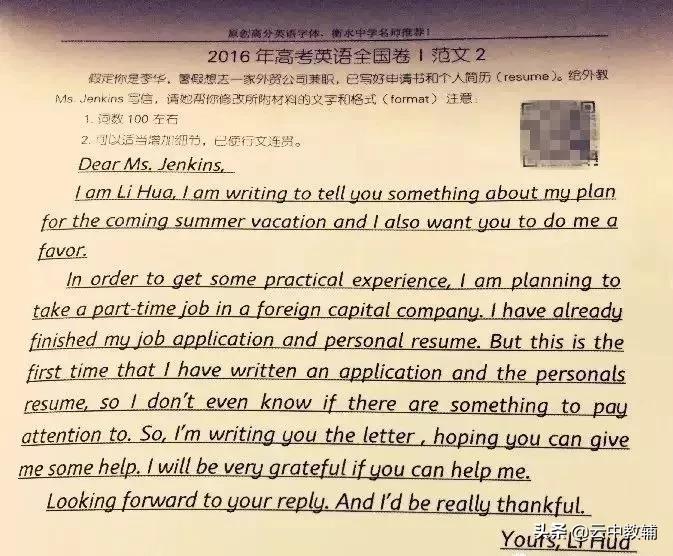 原创高分英语字体，衡水中学名师推荐！
2016年高考英语全国卷Ⅰ范文2
假定你是李华，暑假想去一家外贸公司兼职，已写好申请书和个人简历（resume）。给外教
Ms. Jenkins 写信，请她帮你修改所附材料的文字和格式（format）注意：
1. 词数 100 左右
2. 可以适当增加细节，已使行文连贯。
Dear Ms. Jenkins,
I am Li Hua, I am writing to tell you something about my plan
for the coming summer vacation and I also want you to do me a
favor.
In order to get some practical experience, I am planning to
take a part-time job in a foreign capital company. I have already
finished my job application and personal resume. But this is the
first time that I have written an application and the personals
resume, so I don't even know if there are something to pay
attention to. So, I'm writing you the letter , hoping you can give
me some help. I will be very grateful if you can help me.
Looking forward to your reply. And I'd be really thankful.
Yours, Li Hua
头条 @云中教辅